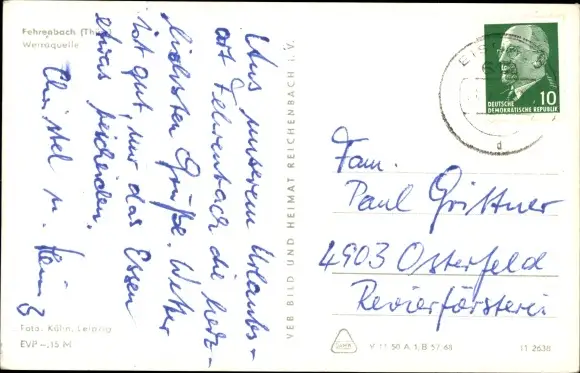 Fehrenbach (Thür.
Werraquelle
Aus unserem Urlaubs-
ort Fehrenbach die herz-
lichsten Grüße. Wetter
ist gut, nur das Essen
etwas bescheiden.
Christel u. Heinz
Foto: Kühn, Leipzig
EVP -,15 M
VEB BILD UND HEIMAT REICHENBACH i. V.
EIS
DEUTSCHE
DEMOKRATISCHE REPUBLIK
10
d
Fam.
Paul Grittner
4903 Osterfeld
Revierförsterei
V 11 50 A 1/B 57/68
11 2638